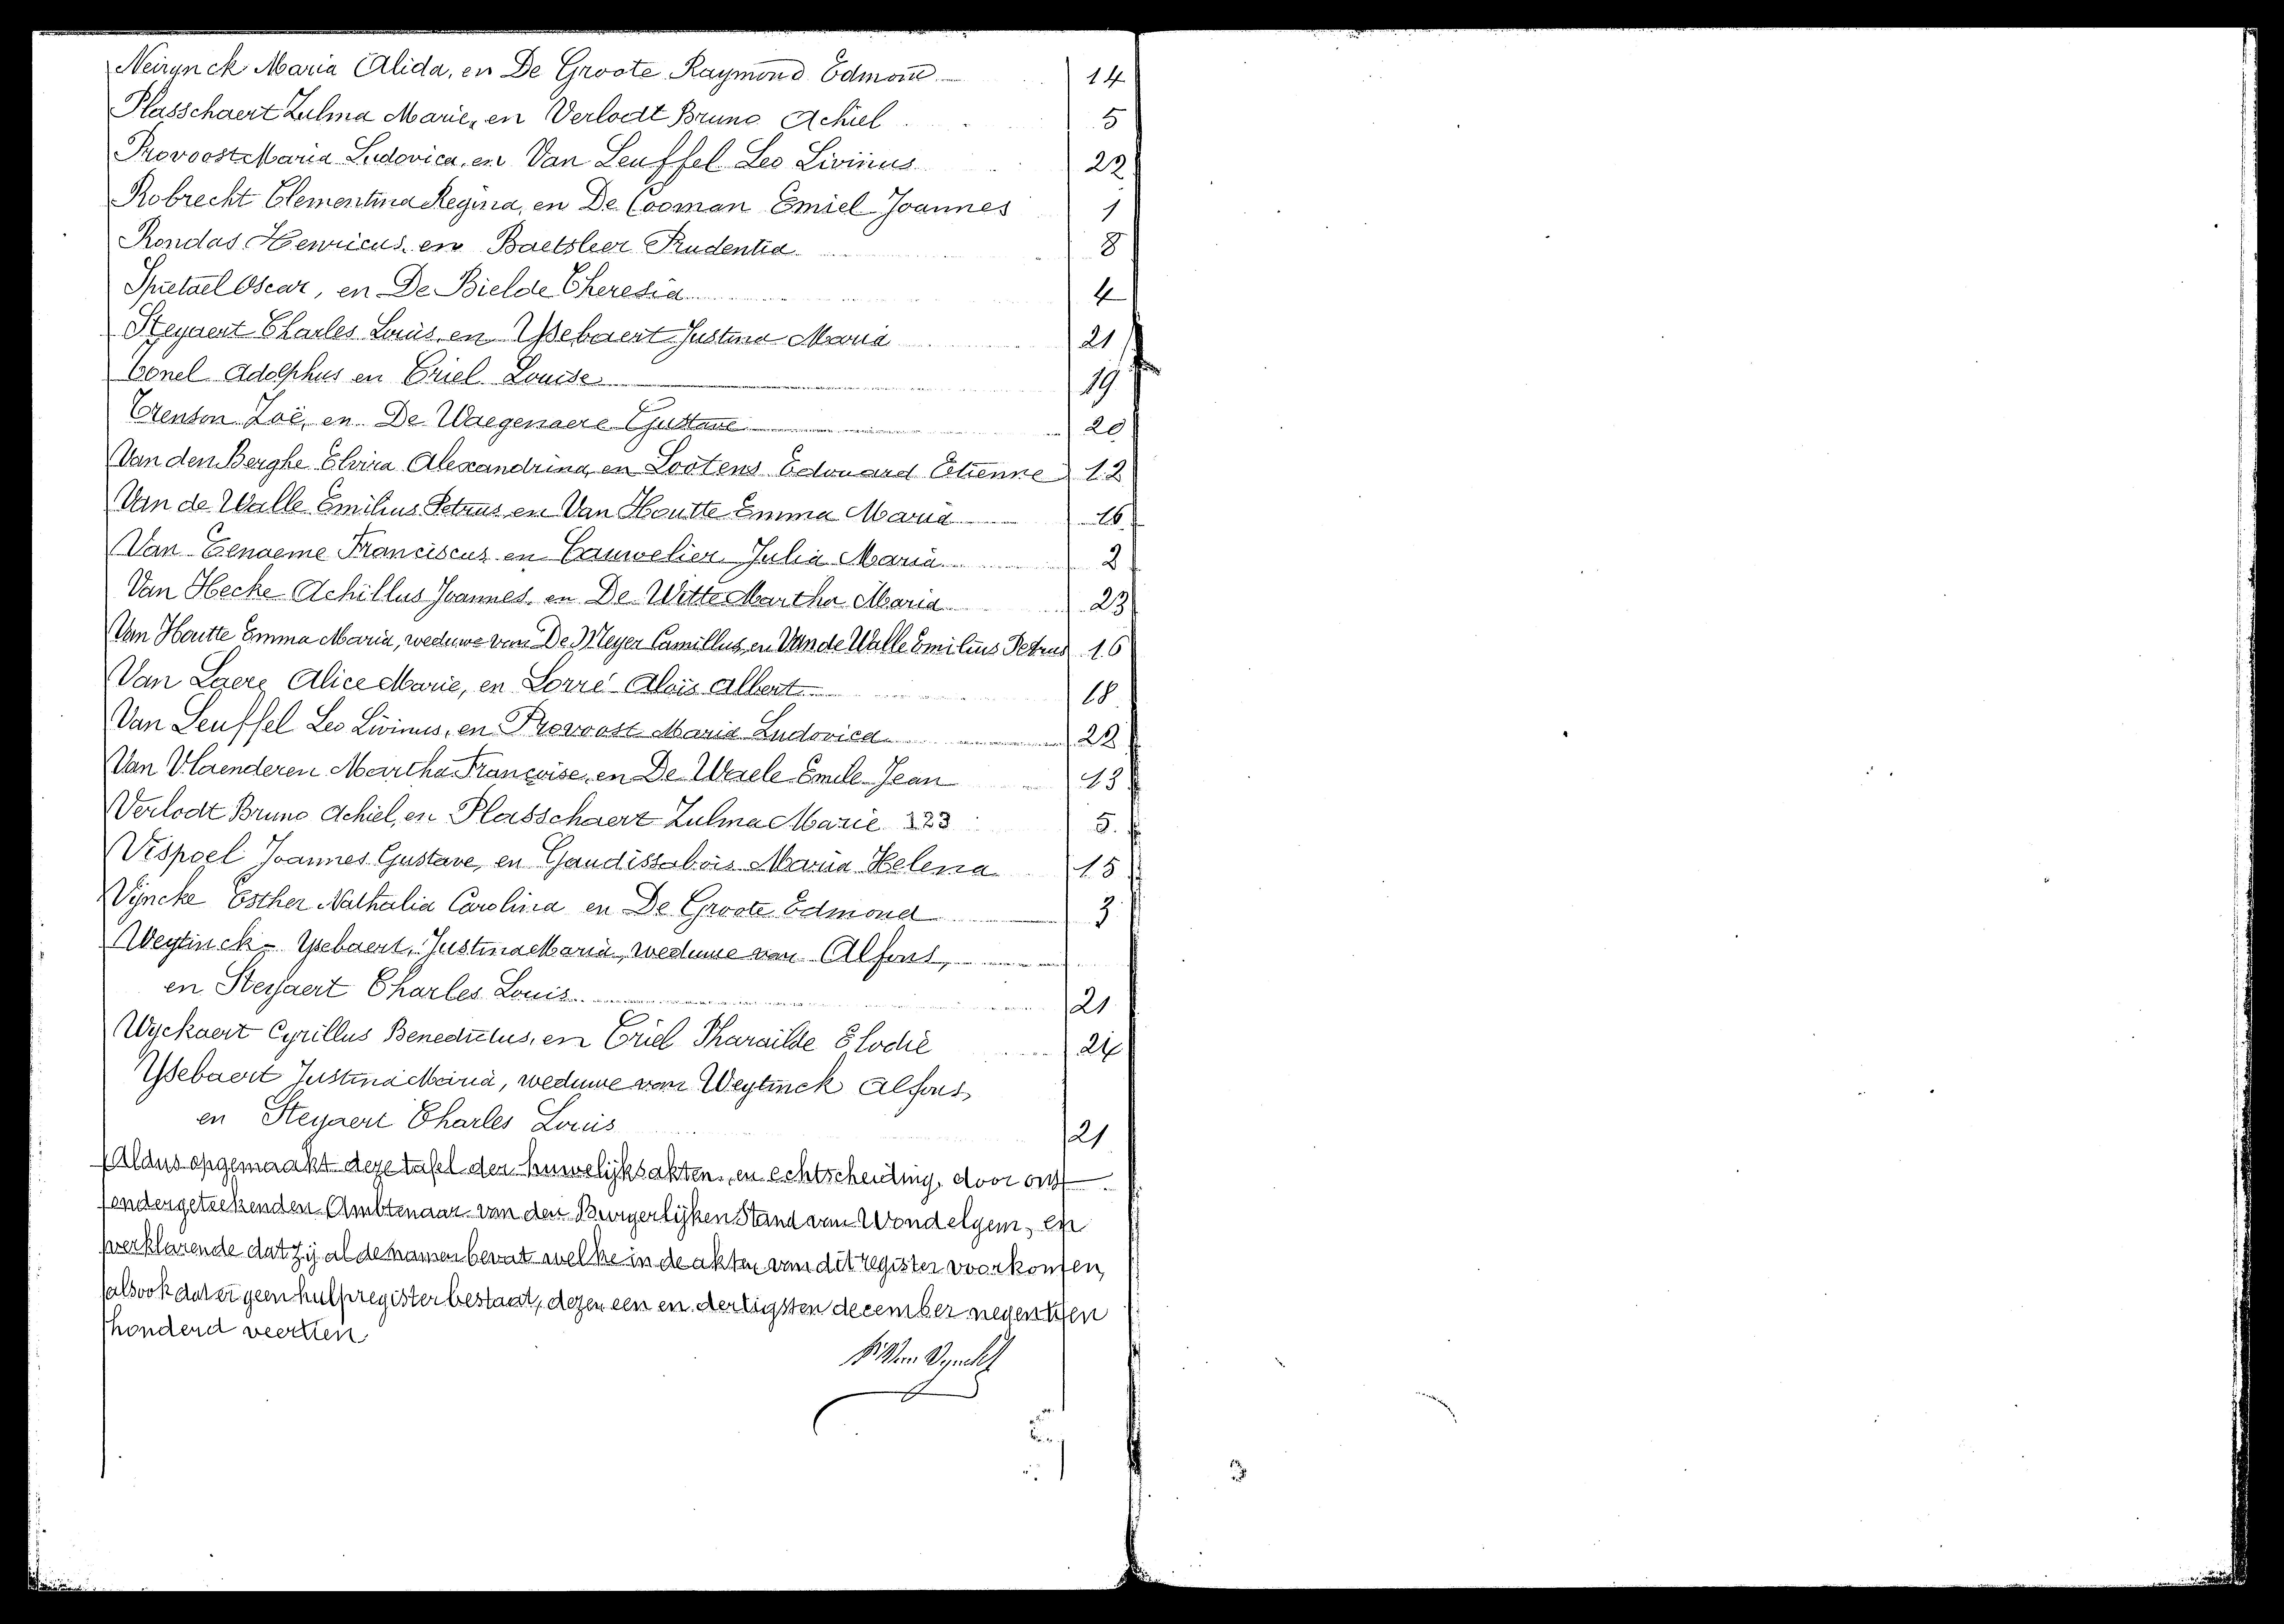 Neirynck Maria Alida, en De Groote Raymond Edmond 14
Plasschaert Zulma Marie, en Verlodt Bruno Achiel 5
Provoost Maria Ludovica, en Van Leuffel Leo Livinus 22
Robrecht Clementina Regina, en De Cooman Emiel Joannes 1
Rondas Henricus, en Baetsleer Prudentia 8
Spietael Oscar, en De Bielde Theresia 4
Steyaert Charles Louis, en Ysebaert Justina Maria 21
Tonel Adolphus en Criel Louise 19
Trenson Zoë, en De Waegenaere Gustave 20
Van den Berghe Elvira Alexandrina, en Lootens Edouard Etienne 12
Van de Walle Emilius Petrus en Van Houtte Emma Maria 16
Van Eenaeme Franciscus en Cauwelier Julia Maria 2
Van Hecke Achillus Joannes, en De Witte Martha Maria 23
Van Houtte Emma Maria, weduwe van De Meyer Camillus, en Van de Walle Emilius Petrus 16
Van Laere Alice Marie, en Lorré Aloïs Albert 18
Van Leuffel Leo Livinus, en Provoost Maria Ludovica 22
Van Vlaenderen Martha Françoise, en De Waele Emile Jean 13
Verlodt Bruno Achiel, en Plasschaert Zulma Marie 5
Vispoel Joannes Gustave, en Gaudissabois Maria Helena 15
Vyncke Esther Nathalia Carolina en De Groote Edmond 3
Weytinck - Ysebaert, Justina Maria, weduwe van Alfons,
en Steyaert Charles Louis 21
Wyckaert Cyrillus Benedictus, en Criel Pharaïlde Elodie 24
Ysebaert Justina Maria, weduwe van Weytinck Alfons,
en Steyaert Charles Louis 21
Aldus opgemaakt deze tafel der huwelijksakten, en echtscheiding, door ons
ondergeteekenden Ambtenaar van den Burgerlijken Stand van Wondelgem, en
verklarende dat zij al de namen bevat welke in de akten van dit register voorkomen,
alsook dat er geen hulpregister bestaat, dezen een en dertigsten december negentien
honderd veertien